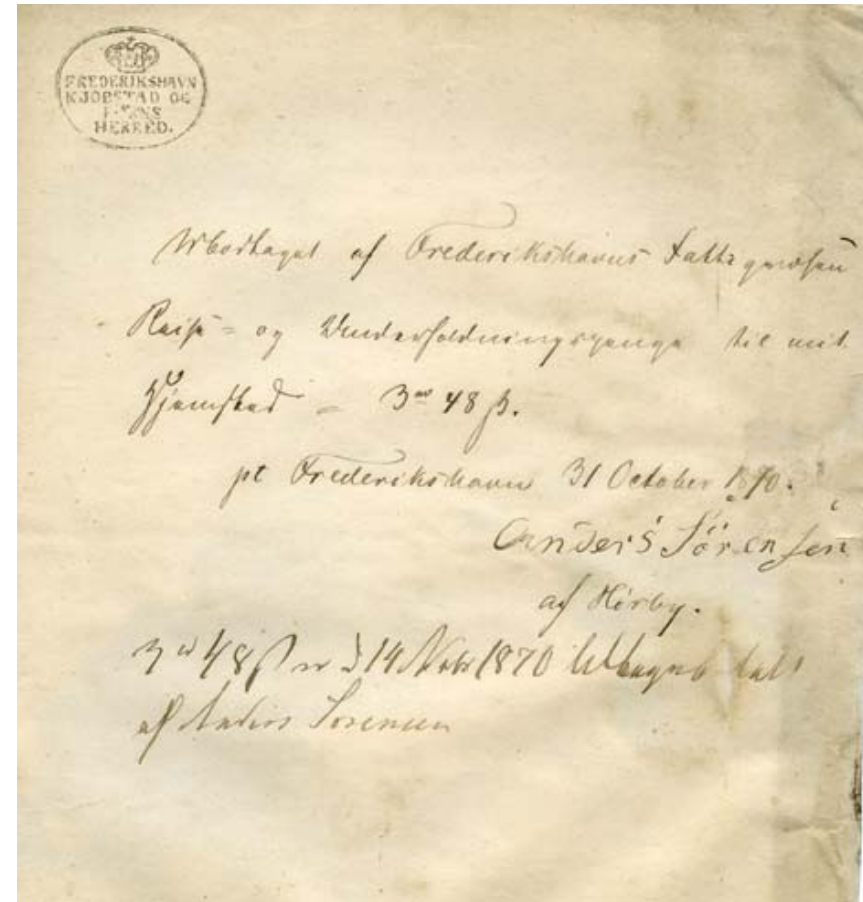 FREDERIKSHAVN
KJØBSTAD OG
HERRED.
Modtaget af Frederikshavns Fattigvæsen
Reise- og Underholdningspenge til mit
Hjemsted - 3 rd 48 β.
pt Frederikshavn 31 October 1870.
Anders Sörensen
af Hörby.
3 rd 48 β er d 14 Nvbr 1870 tilbagebetalt
af Anders Sørensen